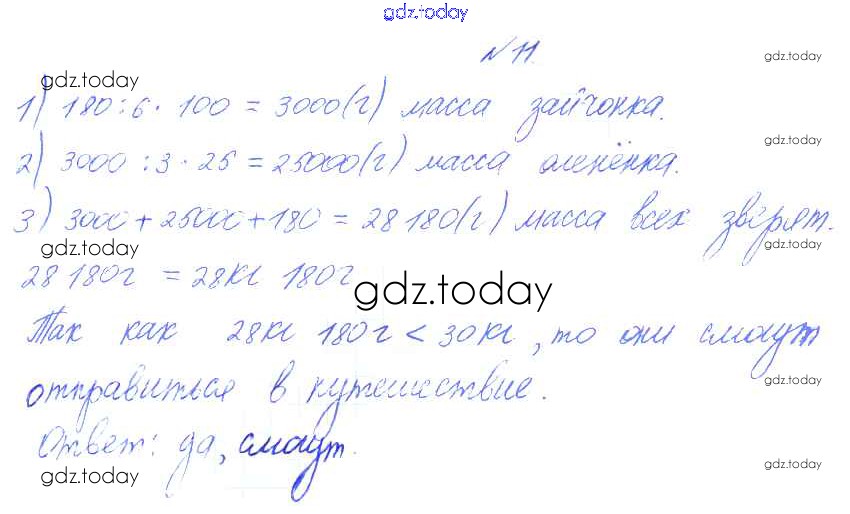 gdz.today
№ 11.
gdz.today
gdz.today
1) 180 : 6 · 100 = 3000 (г) масса зайчонка.
gdz.today
2) 3000 : 3 · 25 = 25000 (г) масса оленёнка.
gdz.today
3) 3000 + 25000 + 180 = 28 180 (г) масса всех зверят.
gdz.today
gdz.today
28 180 г = 28 кг 180 г
gdz.today
Так как 28 кг 180 г < 30 кг, то они смогут
gdz.today
отправиться в путешествие.
Ответ: да, смогут.
gdz.today
gdz.today